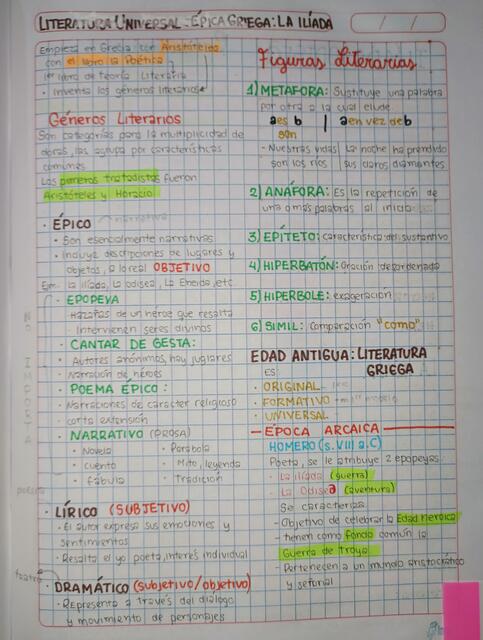 LITERATURA UNIVERSAL - ÉPICA GRIEGA: LA ILÍADA
/ /
Empieza en Grecia con Aristóteles
con el libro la Poética
1er libro de teoría literaria
• Inventa los géneros literarios
Géneros Literarios
Son categorías para la multiplicidad de
obras, las agrupa por características
comunes
Los primeros tratadistas fueron
Aristóteles y Horacio
• ÉPICO narrativa
• Son esencialmente narrativas
• Incluye descripciones de lugares y
objetos, a lo real OBJETIVO
Ejm. la Ilíada, La odisea, La Eneida, etc.
• EPOPEYA
- Hazañas de un héroe que resalta
- Intervienen seres divinos
• CANTAR DE GESTA:
• Autores anónimos, hay juglares
• Narración de héroes
• POEMA ÉPICO:
• Narraciones de carácter religioso
• corta extensión
• NARRATIVO (PROSA)
• Novela • Parábola
• cuento • Mito, leyenda
• fábula • Tradición
NO IMPORTA
poesía
• LÍRICO (SUBJETIVO)
• El autor expresa sus emociones y
sentimientos
• Resalta el yo poeta, interés individual
teatro
• DRAMÁTICO (subjetivo/objetivo)
• Representa a través del diálogo
y movimiento de personajes
Figuras Literarias
1) METAFORA: Sustituye una palabra
por otra a la cual elude
a es b | a en vez de b
son
- Nuestras vidas | La noche ha prendido
son los ríos | sus claros diamantes
2) ANÁFORA: Es la repetición de
una o más palabras al inicio
3) EPÍTETO: característica del sustantivo
4) HIPERBATÓN: Oración desordenada
5) HIPERBOLE: exageración
6) SIMIL: Comparación "como"
EDAD ANTIGUA: LITERATURA
GRIEGA
ES:
- ORIGINAL
- FORMATIVO
- UNIVERSAL
ÉPOCA ARCAICA
HOMERO (s. VIII a.C)
Poeta, se le atribuye 2 epopeyas
- La ilíada (guerra)
- La Odisea (aventura)
Se caracteriza
- Objetivo de celebrar la Edad heroica
- tienen como fondo común la
Guerra de Troya
- Pertenecen a un mundo aristocrático
y señorial